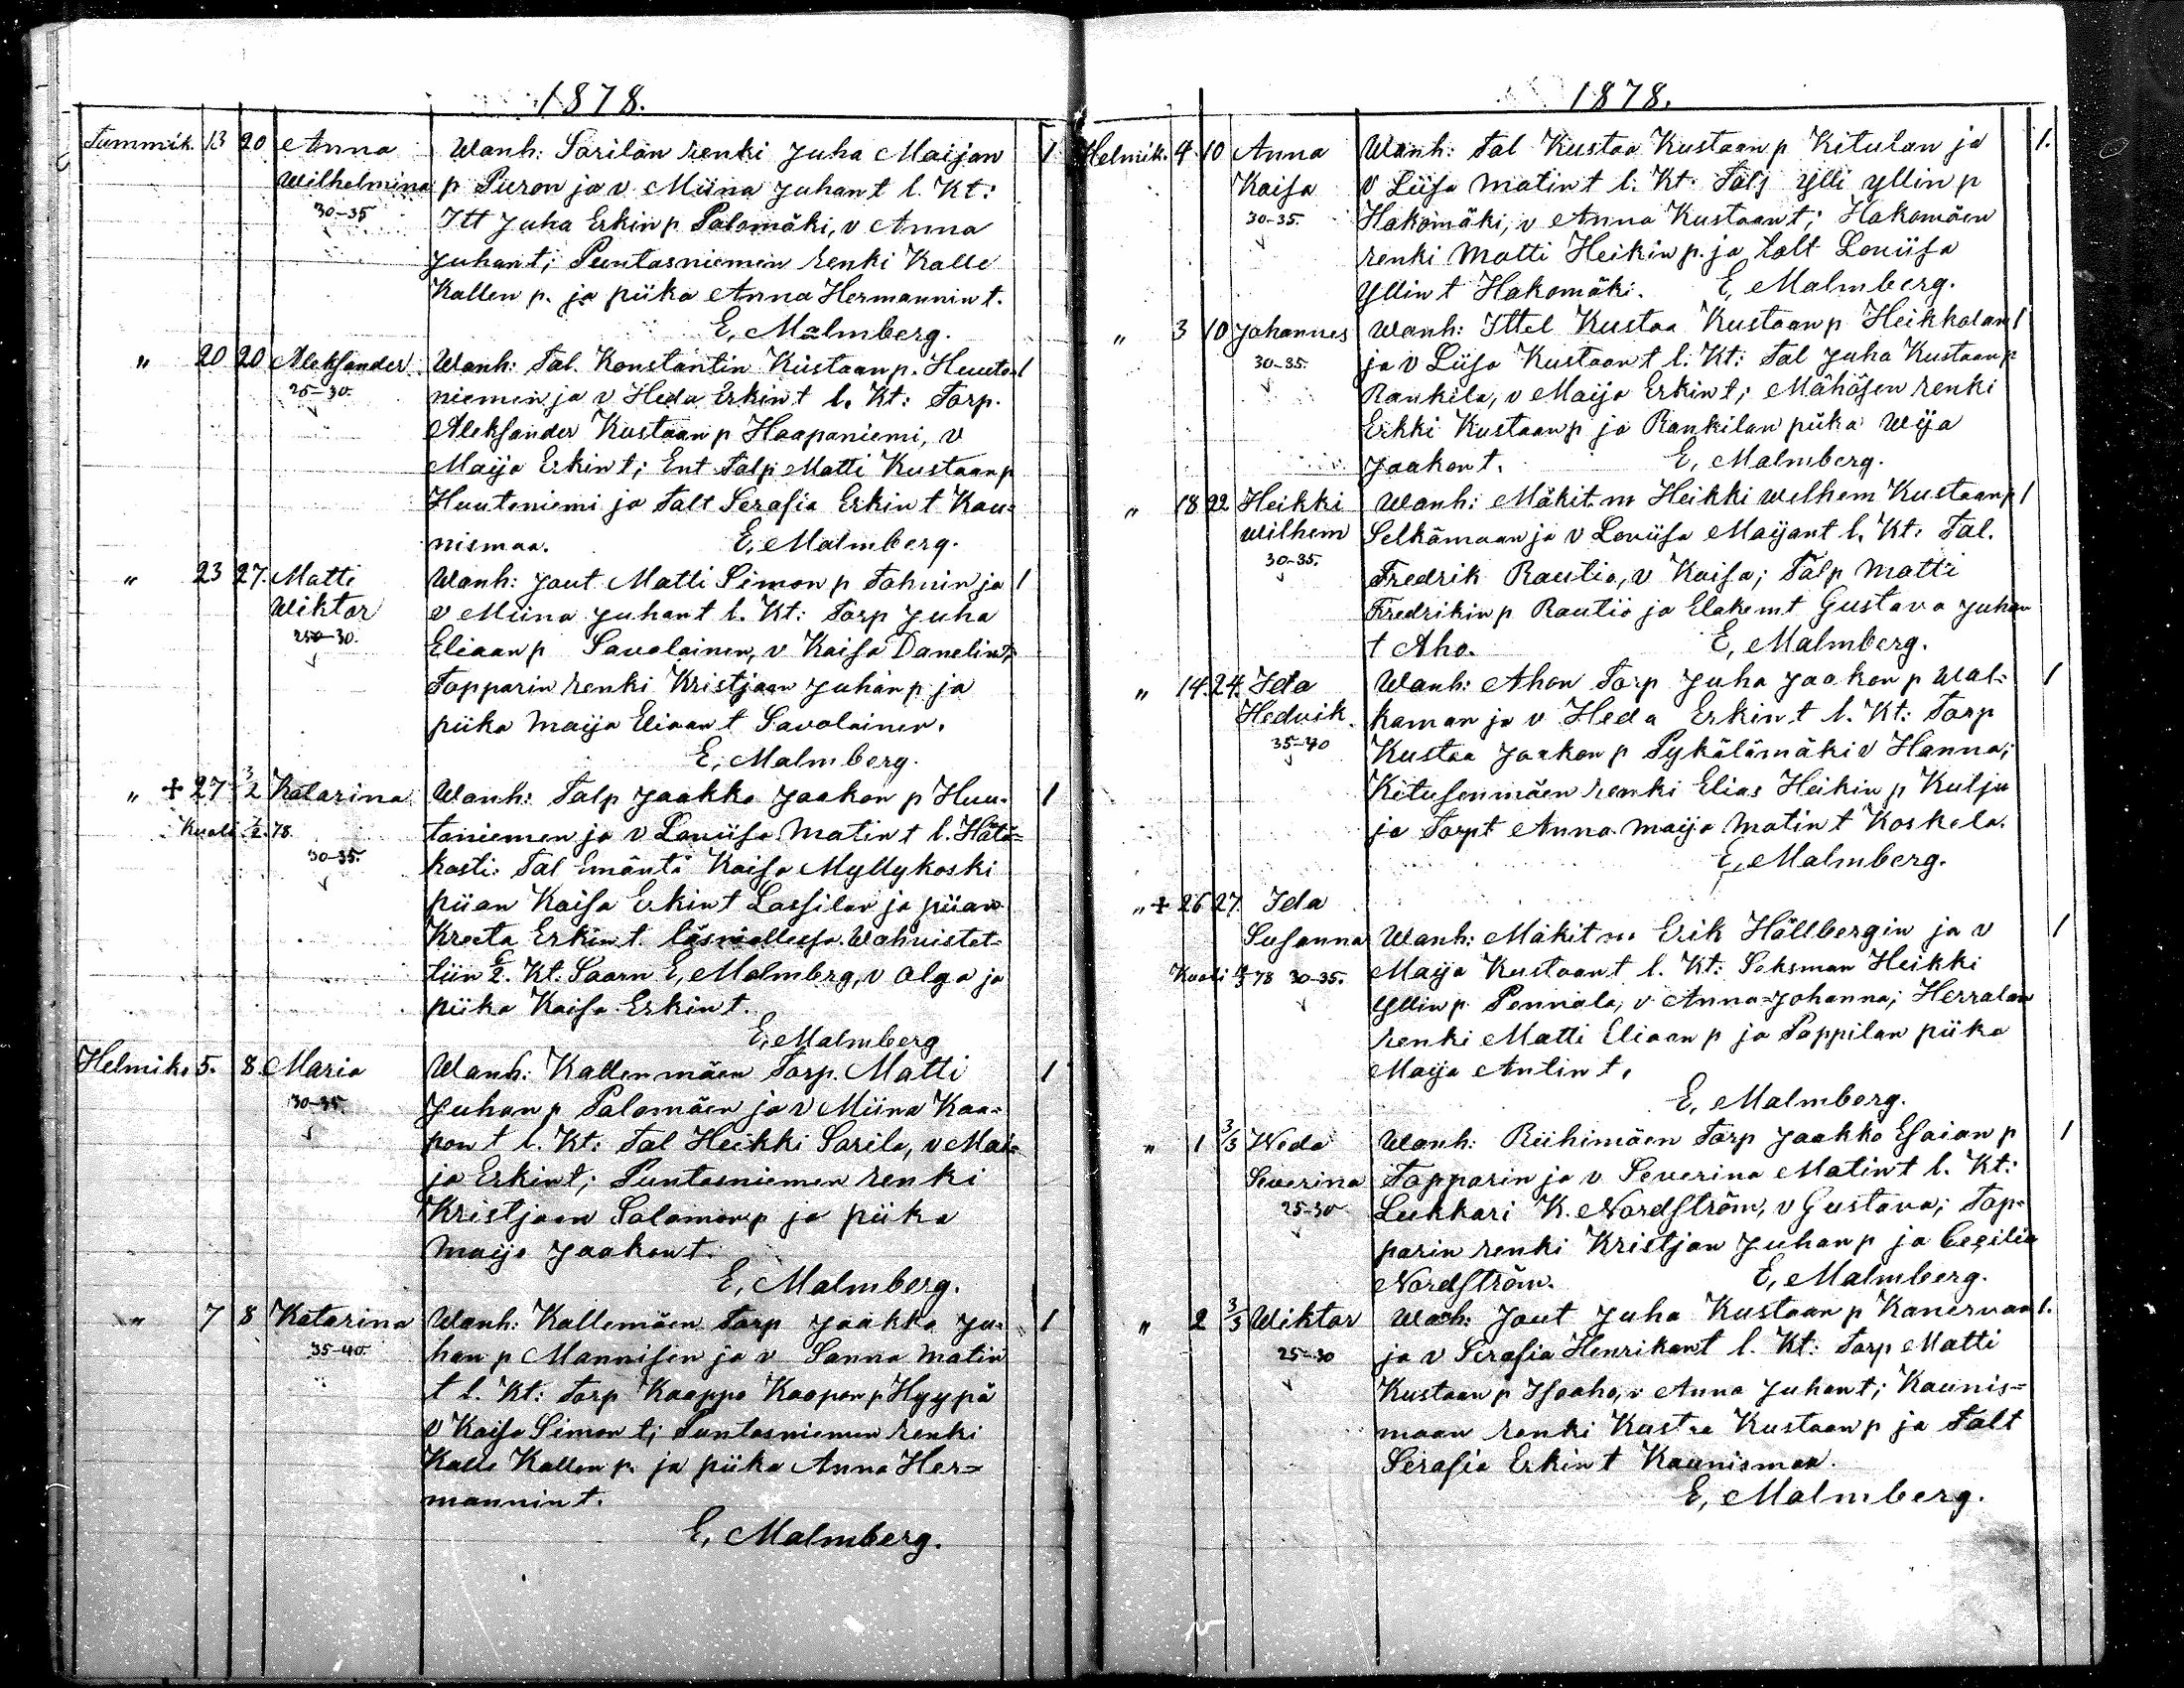 1878.
Tammik. 13 20 Anna Wanh: Sarilan renki Juha Maijan 1
Wilhelmina p Puron ja v Miina Juhan t l. Kt:
30-35 Itt Juha Erkin p Palomäki, v Anna
Juhan t; Puntasniemen renki Kalle
Kallen p. ja piika Anna Hermannin t.
E, Malmberg.
" 20 20 Aleksander Wanh: Tal. Konstantin Kustaan p. Huuto= 1
25-30. niemen ja v Heda Erkin t l. Kt: Torp.
Aleksander Kustaan p Haapaniemi, v
Maija Erkin t; Ent Talp Matti Kustaan p
Huutoniemi ja Talt Serafia Erkin t Kau=
nismaa. E, Malmberg.
" 23 27. Matti Wanh: Jout Matti Simon p Tahnin ja 1
Wiktor v Miina Juhan t l. Kt: Torp Juha
25-30. Eliaan p Savolainen, v Kaisa Danelin t;
Topparin renki Kristjaan Juhan p ja
piika Maija Eliaan t Savolainen.
E, Malmberg.
" + 27 3/2 Katarina Wanh: Talp Jaakko Jaakon p Huu- 1
Kuoli 1/2.78. taniemen ja v Lowiisa Matin t l. Hätä=
30-35. kasti: Tal Emäntä Kaisa Myllykoski
piian Kaisa Erkin t Lassilan ja piian
Kreeta Erkin t. läsnäollessa. Wahvistet=
tiin 2. Kt. Saarn E, Malmberg, v Olga ja
piika Kaisa Erkin t.
E, Malmberg
Helmik. 5. 8. Maria Wanh: Kallenmäen Torp. Matti 1
30-35. Juhan p Palomäen ja v Miina Kaa=
pon t l. Kt: Tal Heikki Sarila, v Mai=
ja Erkin t; Puntasniemen renki
Kristjaan Salomon p ja piika
Maija Jaakon t.
E, Malmberg.
" 7 8 Katarina Wanh: Kallemäen Torp Jaakko Ju= 1
35-40. han p Mannisen ja v Sanna Matin
t l. Kt: Torp Kaappo Kaapon p Hyypä
v Kaisa Simon t; Puntasniemen renki
Kalle Kallen p. ja piika Anna Her=
mannin t.
E, Malmberg.
1878.
Helmik. 4 10 Anna Wanh: Tal Kustaa Kustaan p Kitulan ja 1.
Kaisa v Liisa Matin t l. Kt: Talj Ylli Yllin p
30-35. Hakomäki, v Anna Kustaan t; Hakomäen
renki Matti Heikin p. ja talt Loviisa
Yllin t Hakomäki. E, Malmberg.
" 3 10 Johannes Wanh: Ittel Kustaa Kustaan p Heikkolan 1
30-35. ja v Liisa Kustaan t l. Kt: Tal Juha Kustaan p
Rankila, v Maija Erkin t; Mähösen renki
Erkki Kustaan p ja Rankilan piika Wija
Jaakon t. E, Malmberg.
" 18 22 Heikki Wanh: Mäkit. m Heikki Welhem Kustaan p 1
Wilhem Selkämaan ja v Loviisa Maijan t l. Kt: Tal.
30-35. Fredrik Rautio, v Kaisa; Talp Matti
Fredrikin p Rautio ja Elakemt Gustava Juhan
t Aho. E, Malmberg.
" 14. 24. Ida Wanh: Ahon Torp Juha Jaakon p Wal= 1
Hedvik. kaman ja v Heda Erkin t l. Kt: Torp
35-40 Kustaa Jaakon p Pykälämäki v Hanna;
Kitusenmäen renki Elias Heikin p Kulju
ja Torpt Anna Maija Matin t Koskela.
E, Malmberg.
" + 26 27. Ida
Susanna Wanh: Mäkit m Erik Hällbergin ja v 1
Kuoli 78 30-35. Maija Kustaan t l. Kt: Seksman Heikki
Yllin p Pennala, v Anna=Johanna; Herralan
renki Matti Eliaan p ja Pappilan piika
Maija Antin t.
E, Malmberg.
" 1 3/3 Weda Wanh: Riihimäen Torp Jaakko Esaian p 1
Severina Topparin ja v Severina Matin t l. Kt:
25-30 Lukkari K. Nordström, v Gustava; Top=
parin renki Kristjan Juhan p ja Ceciliia
Nordström. E, Malmberg.
" 2 3/3 Wiktor Wanh: Jout Juha Kustaan p Kanervan 1.
25-30 ja v Serafia Henrikan t l. Kt: Torp Matti
Kustaan p Isoaho, v Anna Juhan t; Kaunis=
maan renki Kustaa Kustaan p ja Talt
Serafia Erkin t Kaunismaa.
E, Malmberg.